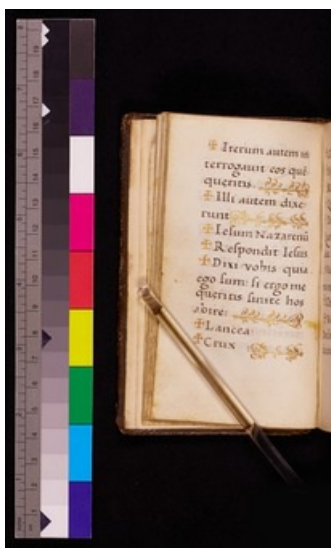 ✠ Iterum autem in
terrogauit eos quē
queritis.
✠ Illi autem dixe
runt
✠ Iesum Nazarenū
✠ Respondit Iesus
✠ Dixi vobis quia
ego sum: si ergo me
queritis sinite hos
abire:
✠ Lancea
✠ Crux